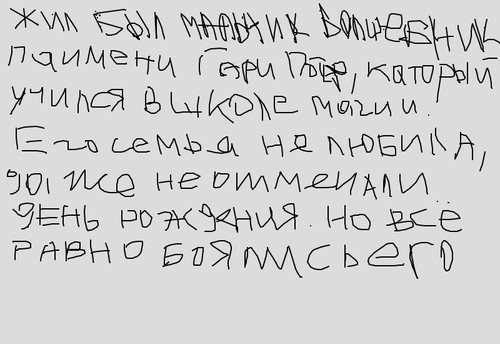 жил был мальчик волшебник
паимени Гари Потер, каторый
учился в школе магии.
Его семья не любила,
даже не отмечали
день рождения. Но всё
равно боялись его